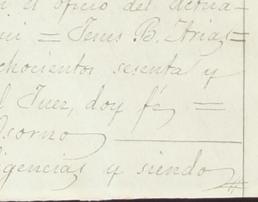 n el oficio del actua-
ui = Jenus B. Arias =
chocientos sesenta y
l Juez, doy fé =
Osorno
igencias y siendo